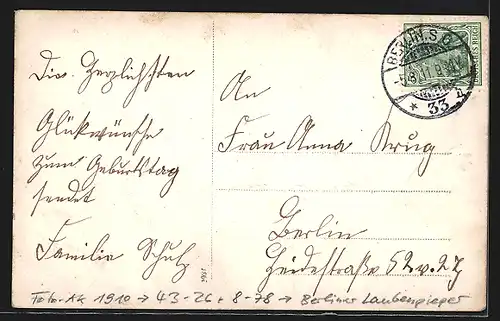 Die Herzlichsten
Glükwünsche
zum Geburtstag
sendet
Familie Schulz
An
Frau Anna Krug
Berlin
Heidestraße 52 v. 2 J
BERLIN. S.
33
Foto-AK 1910 → 43-26 + 8-78 → Berliner Laubenpieper